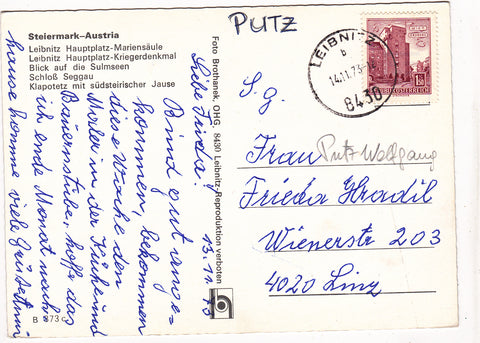 PUTZ
Steiermark-Austria
Leibnitz Hauptplatz-Mariensäule
Leibnitz Hauptplatz-Kriegerdenkmal
Blick auf die Sulmseen
Schloß Seggau
Klapotetz mit südsteirischer Jause
Foto Brothanek, OHG 8430 Leibnitz-Reproduktion verboten
LEIBNITZ
b
14.11.73
8430
REPUBLIK ÖSTERREICH
13.11.73
Liebe Frieda!
Sind gut ange-
kommen, bekommen
diese Woche den
Maler in der Küche und
Bauernstube, hoffe das
ich ende Monat nach
hause komme viele Grüße
B 873 c
S. g.
Frau Putz Wolfgang
Frieda Hradil
Wienerstr 203
4020 Linz